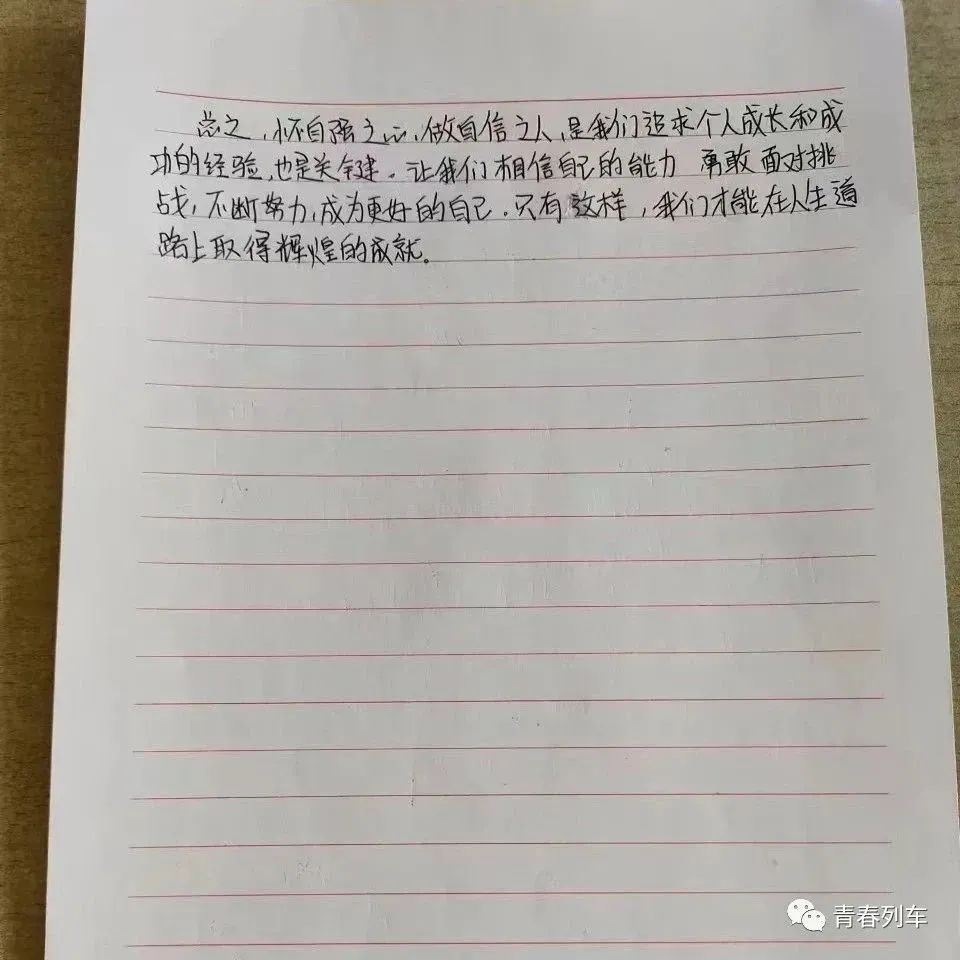 总之，怀自强之心，做自信之人，是我们追求个人成长和成
功的经验，也是关键。让我们相信自己的能力 勇敢面对挑
战，不断努力，成为更好的自己。只有这样，我们才能在人生道
路上取得辉煌的成就。
青春列车